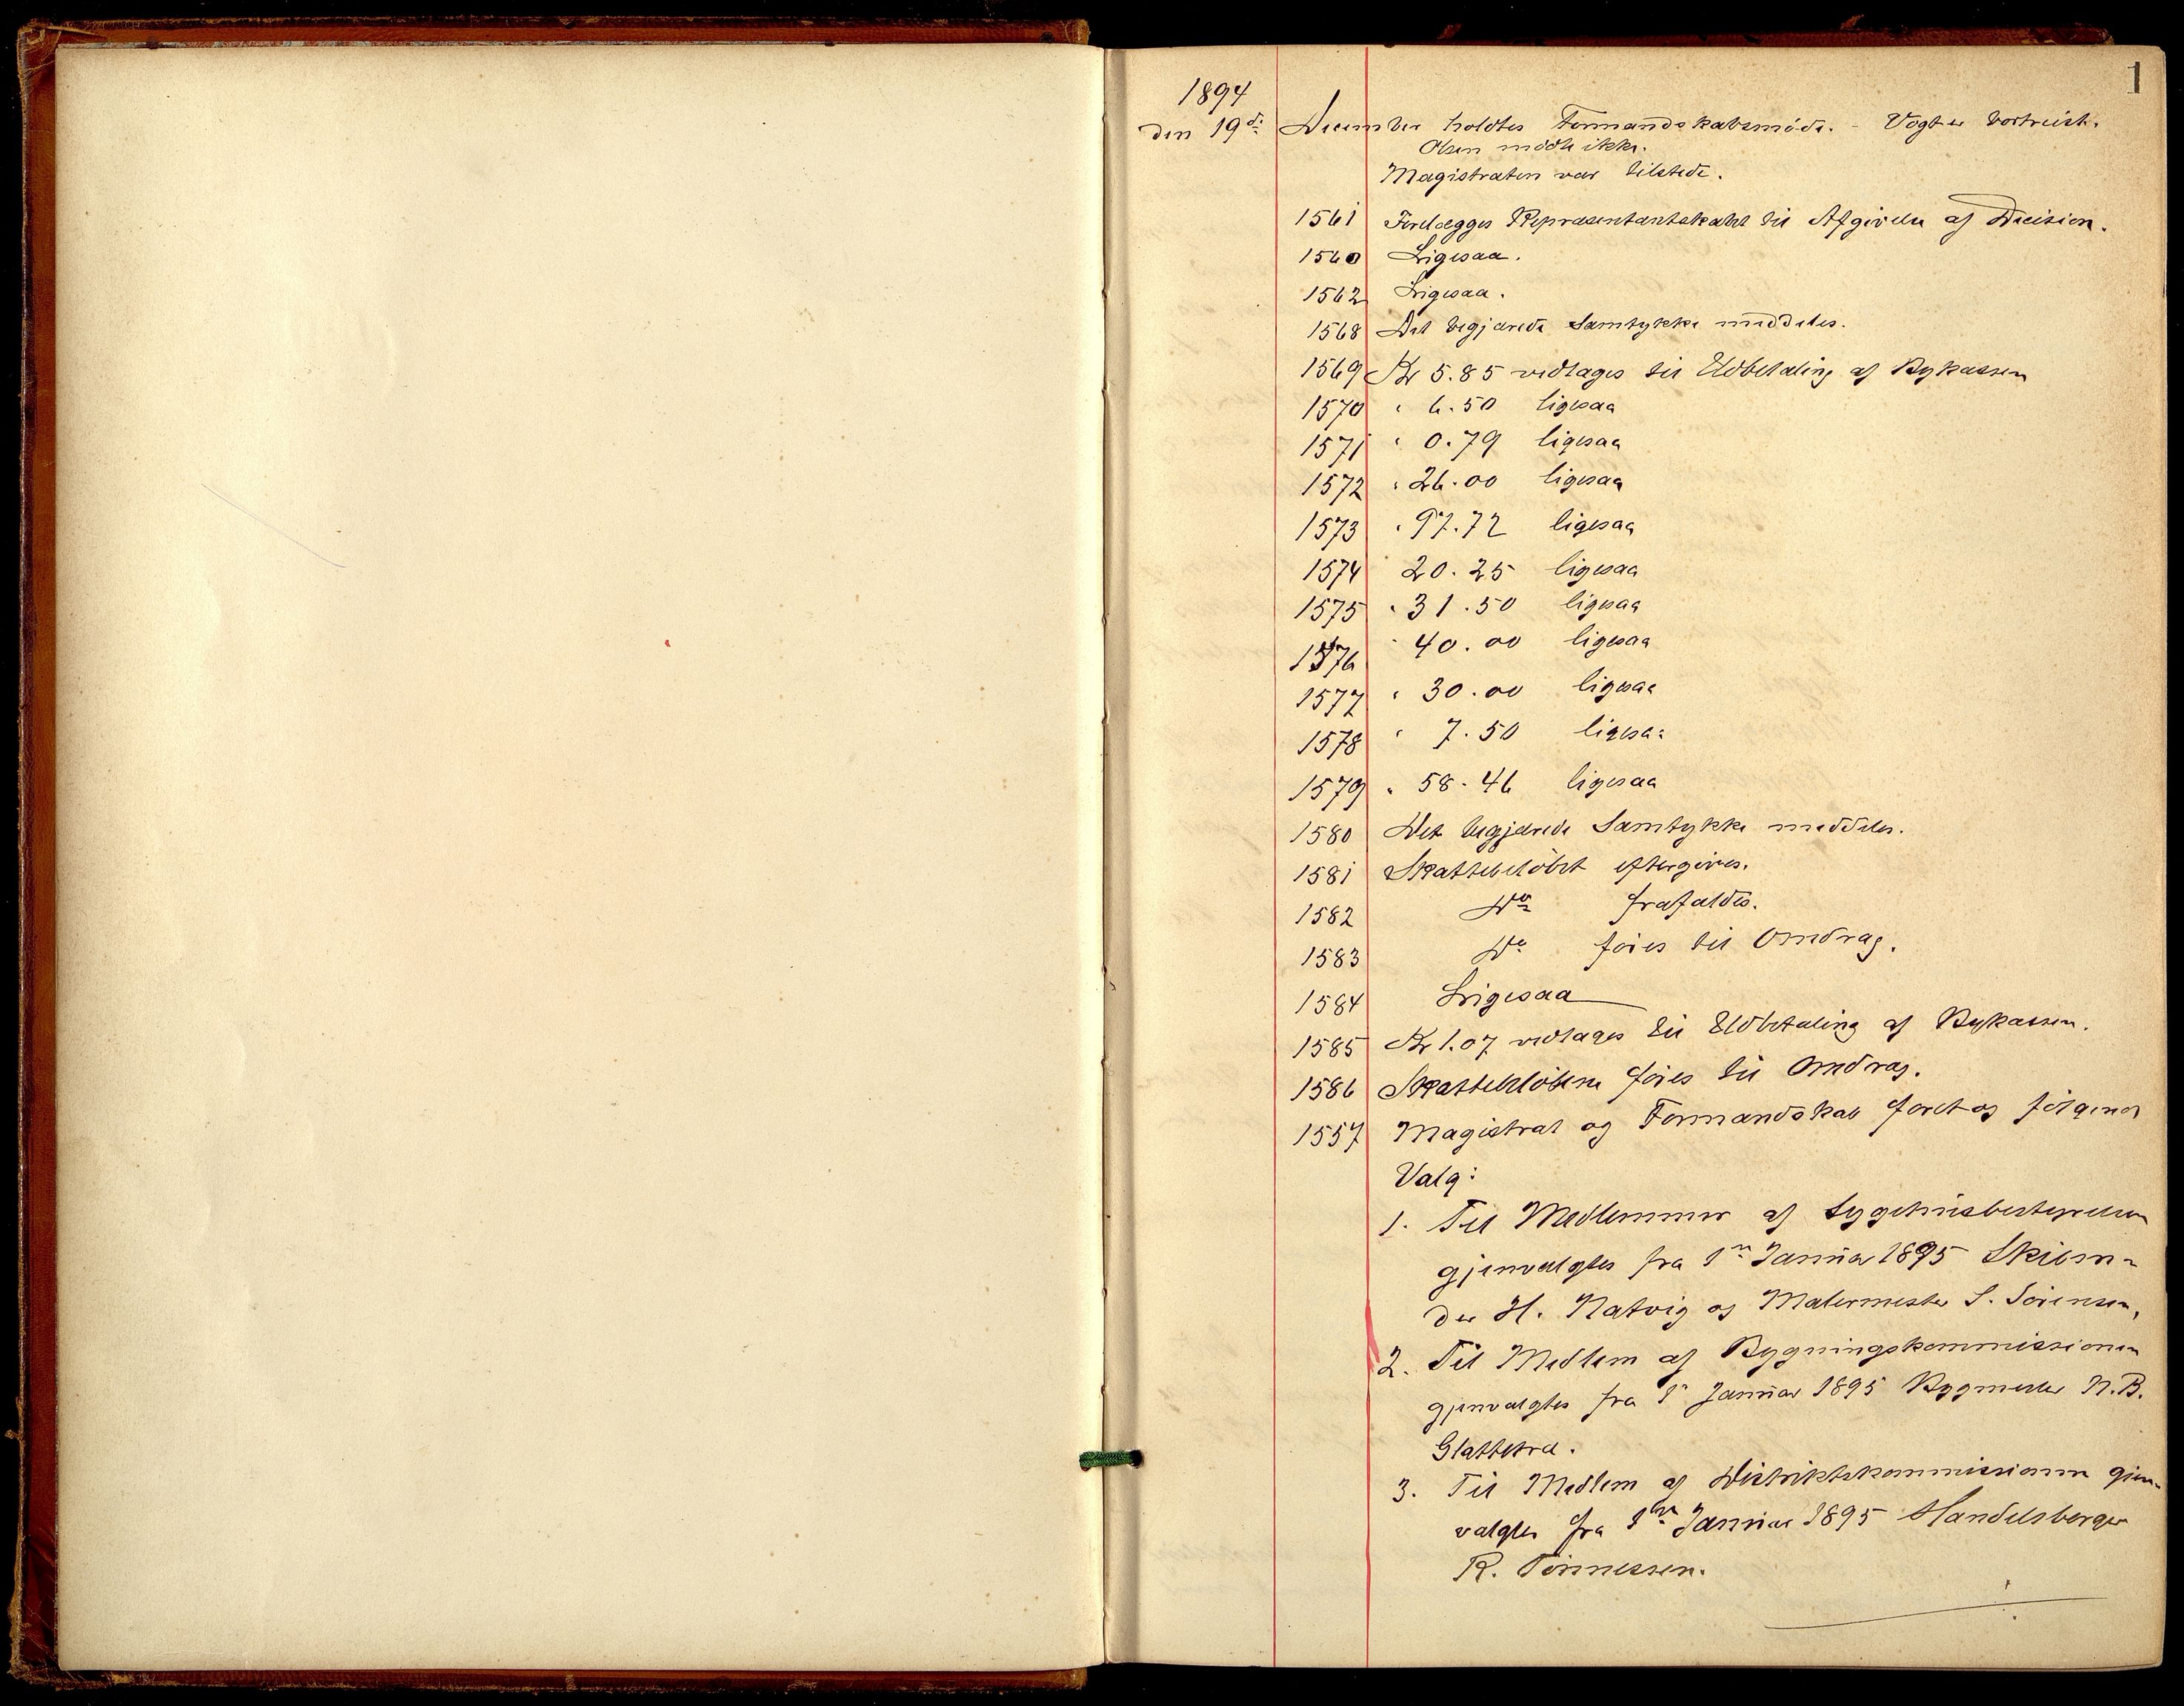 1
1894
den 19de December holdtes Formandskabsmöde. - Vogt er bortreist.
Olsen mödte ikke.
Magistraten var tilstede.
1561 Forelægges Repræsentantskabet til Afgivelse af Decision.
1560 Ligesaa.
1562 Ligesaa.
1568 Det begjærede Samtykke meddeles.
1569 Kr 5.85 vedtages til Udbetaling af Bykassen
1570 " 6.50 ligesaa
1571 " 0.79 ligesaa
1572 " 26.00 ligesaa
1573 " 97.72 ligesaa
1574 20.25 ligesaa
1575 " 31.50 ligesaa
1576 " 40.00 ligesaa
1577 " 30.00 ligesaa
1578 " 7.50 ligesaa
1579 " 58.46 ligesaa
1580 Det begjærede Samtykke meddeles.
1581 Skattebelöbet eftergives.
1582 Do frafaldes.
1583 Do föies til Omdrag.
1584 Ligesaa
1585 Kr 1.07 vedtages til Udbetaling af Bykassen.
1586 Skattebelöbene föies til Omdrag.
1557 Magistrat og Formandskab foretog fölgende
Valg:
1. Til Medlemmer af Sygehusbestyrelsen
gjenvalgtes fra 1ste Januar 1895 Skibsre-
der H. Natvig og Malermester S. Sörensen,
2. Til Medlem af Bygningskommissionen
gjenvalgtes fra 1ste Januar 1895 Bygmester N.B.
Glattetre.
3. Til Medlem af Distriktskommissionen gjen-
valgtes fra 1ste Januar 1895 Handelsborger
R. Tönnessen.